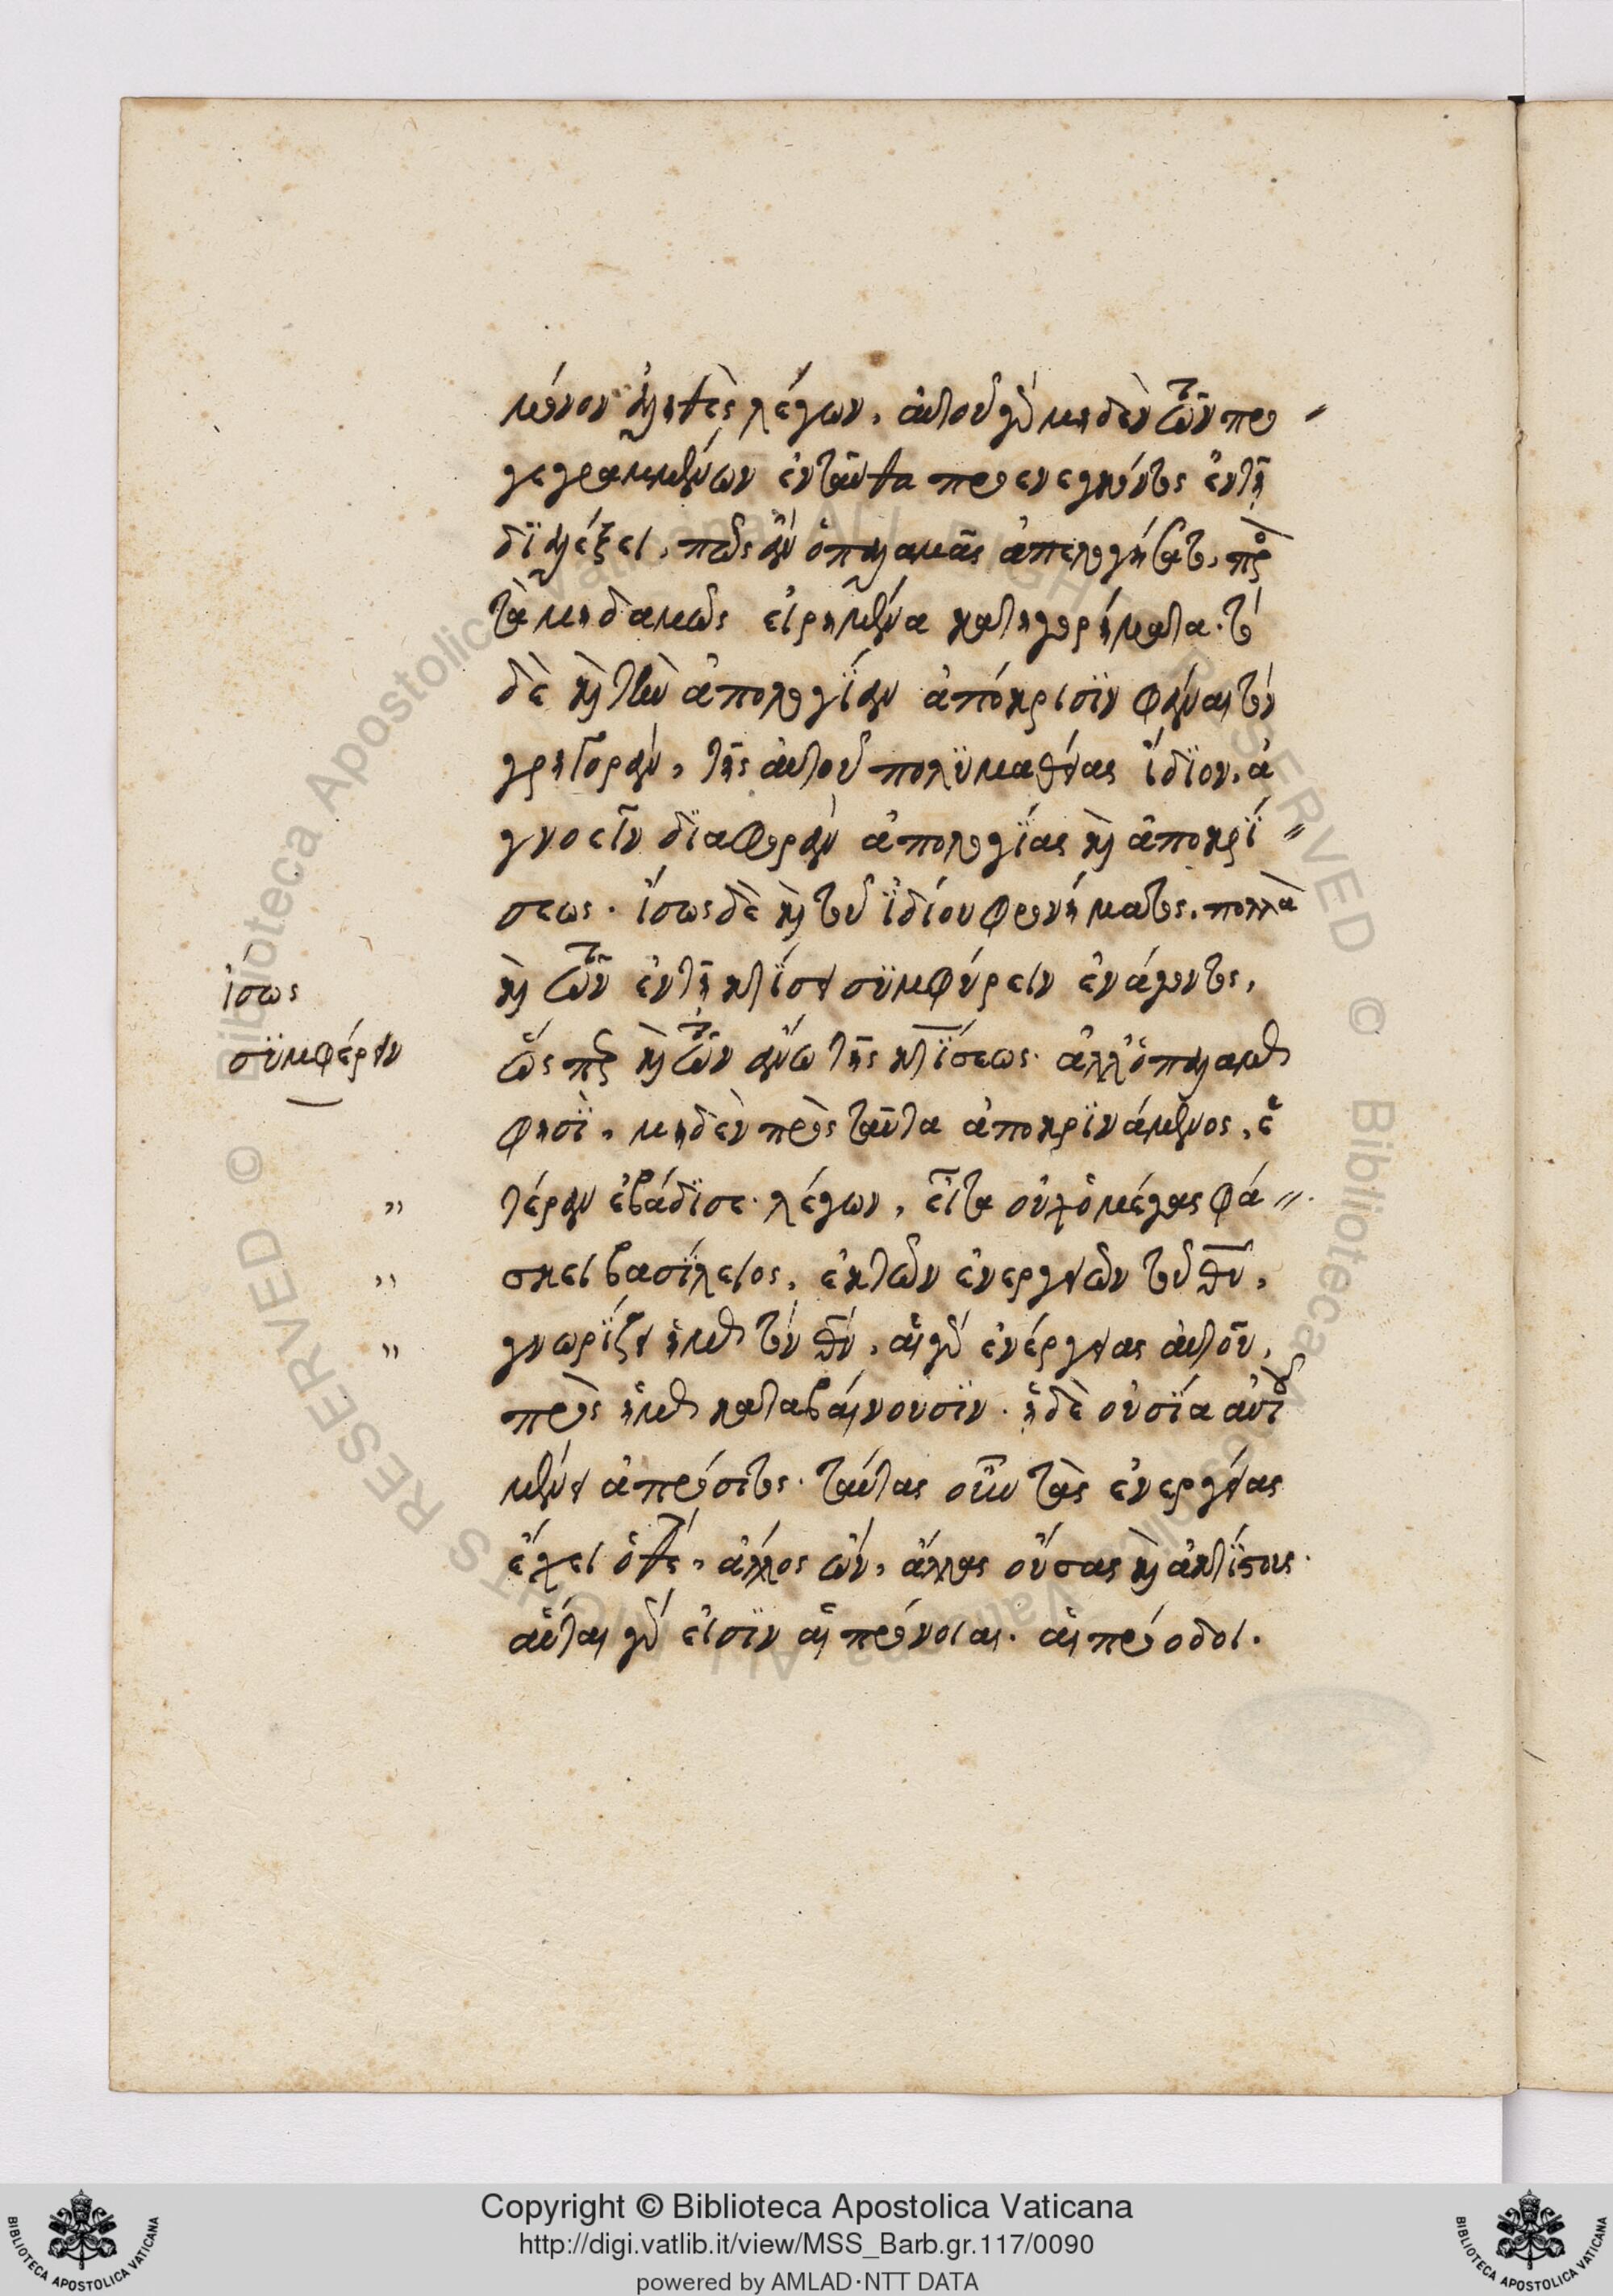 μόνον αἰτεῖς λέγων, αὐτοῦ γὰρ μηδὲν τῶν προ
γεγραμμένων ἐνταῦτα προενεγκόντος ἐν τῇ
διαλέξει, πῶς ἂν ὁ παλαμᾶς ἀπελογήσατο, πρὸς
τὰ μηδαμῶς εἰρημένα κατηγορήματα. τὸ
δὲ καὶ τὴν ἀπολογίαν ἀπόκρισϊν φάναι τὸν
γρηγορᾶν, τῆς αὐτοῦ πολϋμαθείας ἴδϊον, ἀ
γνοεῖν δϊαφορὰν ἀπολογίας καὶ ἀποκρί
σεως. ἴσως δὲ καὶ τοῦ ἰδίου φρονήματος. πολλὰ
καὶ τῶν ἐν τῇ κτίσει σϋμφύρειν ἐνάγοντος,
ὥσπερ καὶ τῶν ἄνω τῆς κτίσεως. ἀλλ' ὁ παλαμᾶς
ἴσως
σϋμφέρειν
φησὶ, μηδὲν πρὸς ταῦτα ἀποκρϊνάμενος, ἑ
τέραν ἐβάδϊσε. λέγων, εἶτα οὐχ ὁ μέγας φά
σκει βασίλειος, ἐκ τῶν ἐνεργειῶν τοῦ θῦ,
γνωρίζειν ἡμᾶς τὸν θν, αἱ γὰρ ἐνέργειαι αὐτοῦ,
πρὸς ἡμᾶς καταβαίνουσϊν. ἡ δὲ οὐσία αὐτοῦ
μένει ἀπρόσιτος. ταύτας οὖν τὰς ἐνεργείας
ἔχει ὁ θς, ἄλλος ὢν, ἄλλας οὔσας καὶ ἀκτίστους.
αὗται γὰρ εἰσϊν αἱ πρόνοιαι. αἱ πρόοδοι.
Copyright © Biblioteca Apostolica Vaticana
http://digi.vatlib.it/view/MSS_Barb.gr.117/0090
powered by AMLAD·NTT DATA
BIBLIOTECA APOSTOLICA VATICANA
BIBLIOTECA APOSTOLICA VATICANA